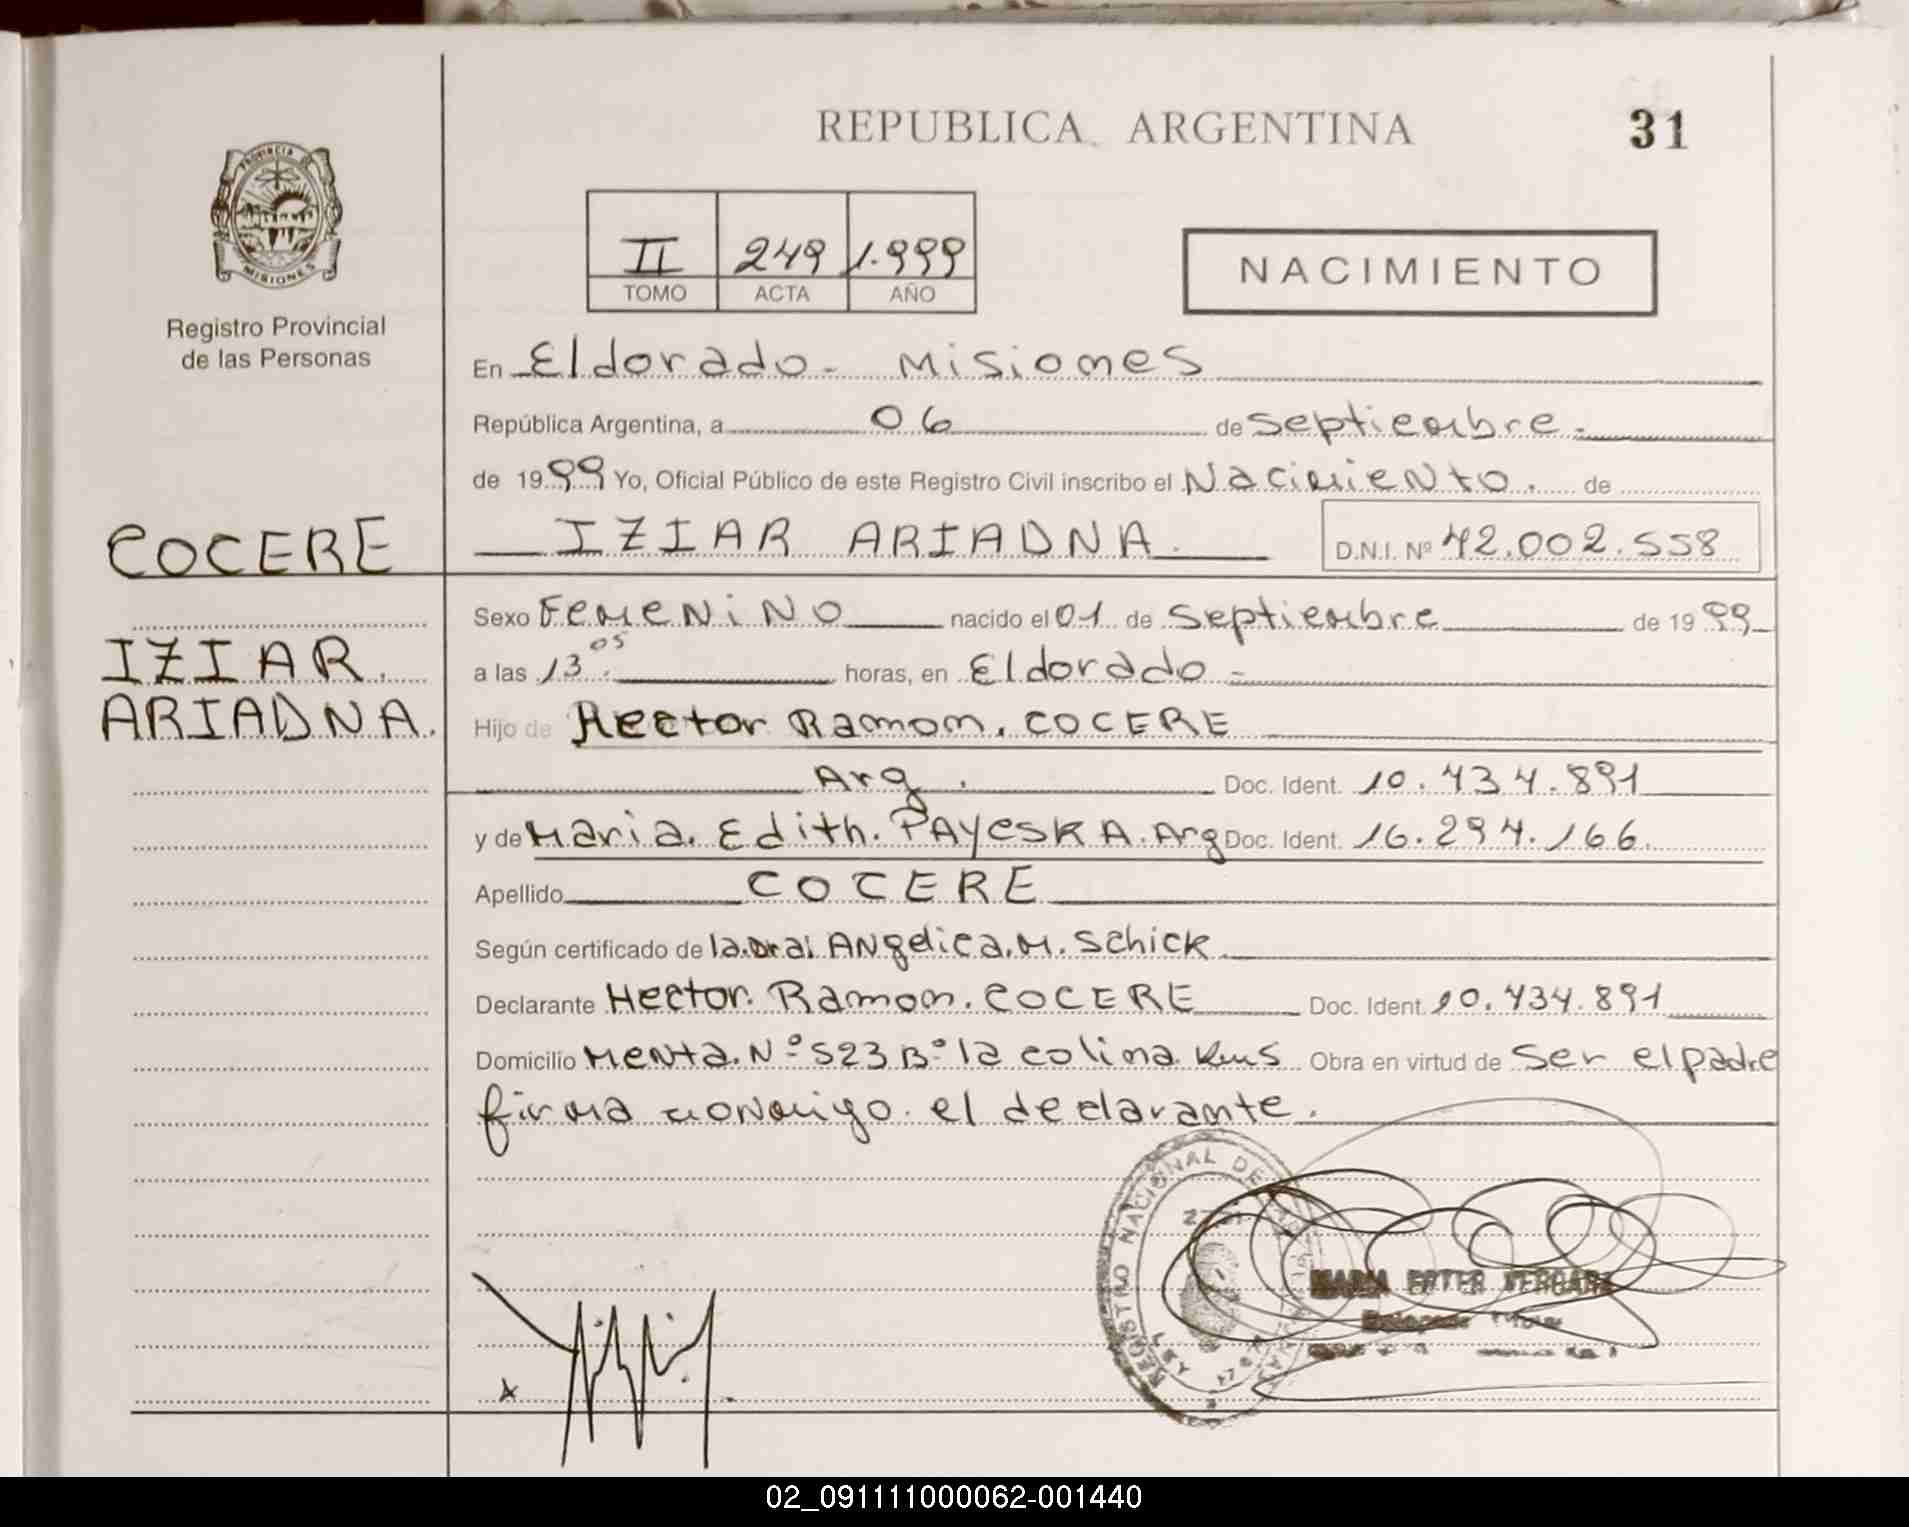 REPUBLICA ARGENTINA
31
PROVINCIA DE
MISIONES
Registro Provincial
de las Personas
II 249 1.999
TOMO ACTA AÑO
NACIMIENTO
En Eldorado - Misiones
República Argentina, a 06 de Septiembre.
de 1999 Yo, Oficial Público de este Registro Civil inscribo el Nacimiento. de
COCERE
IZIAR ARIADNA. D.N.I. Nº 42.002.558
Sexo Femenino nacido el 01 de Septiembre de 1999
IZIAR.
a las 13.05 horas, en Eldorado -
ARIADNA.
Hijo de Hector Ramon. COCERE
Arg. Doc. Ident. 10.434.891
y de Maria. Edith. PAYESKA. Arg Doc. Ident. 16.294.166.
Apellido COCERE
Según certificado de la.Dra. ANgelica.M. Schick
Declarante Hector. Ramon. COCERE Doc. Ident. 10.434.891
Domicilio Menta. Nº 523 Bº la colina Kms Obra en virtud de Ser el padre
firma conmigo. el declarante.
REGISTRO NACIONAL DE
MARIA ESTER VERGARA
02_091111000062-001440